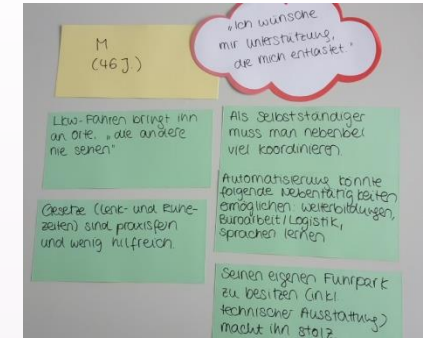 M
(46 J)
"Ich wünsche
mir unterstützung,
die mich entlastet."
Lkw-Fahren bringt ihn
an Orte, "die andere
nie sehen"
Gesetze (Lenk- und Ruhe-
zeiten) sind praxisfern
und wenig hilfreich.
Als Selbstständiger
muss man nebenbei
viel koordinieren.
Automatisierung könnte
folgende Nebentätigkeiten
ermöglichen: Weiterbildungen,
Büroarbeit/Logistik,
sprachen lernen
Seinen eigenen Fuhrpark
zu besitzen (inkl.
technischer Ausstattung)
macht ihn stolz